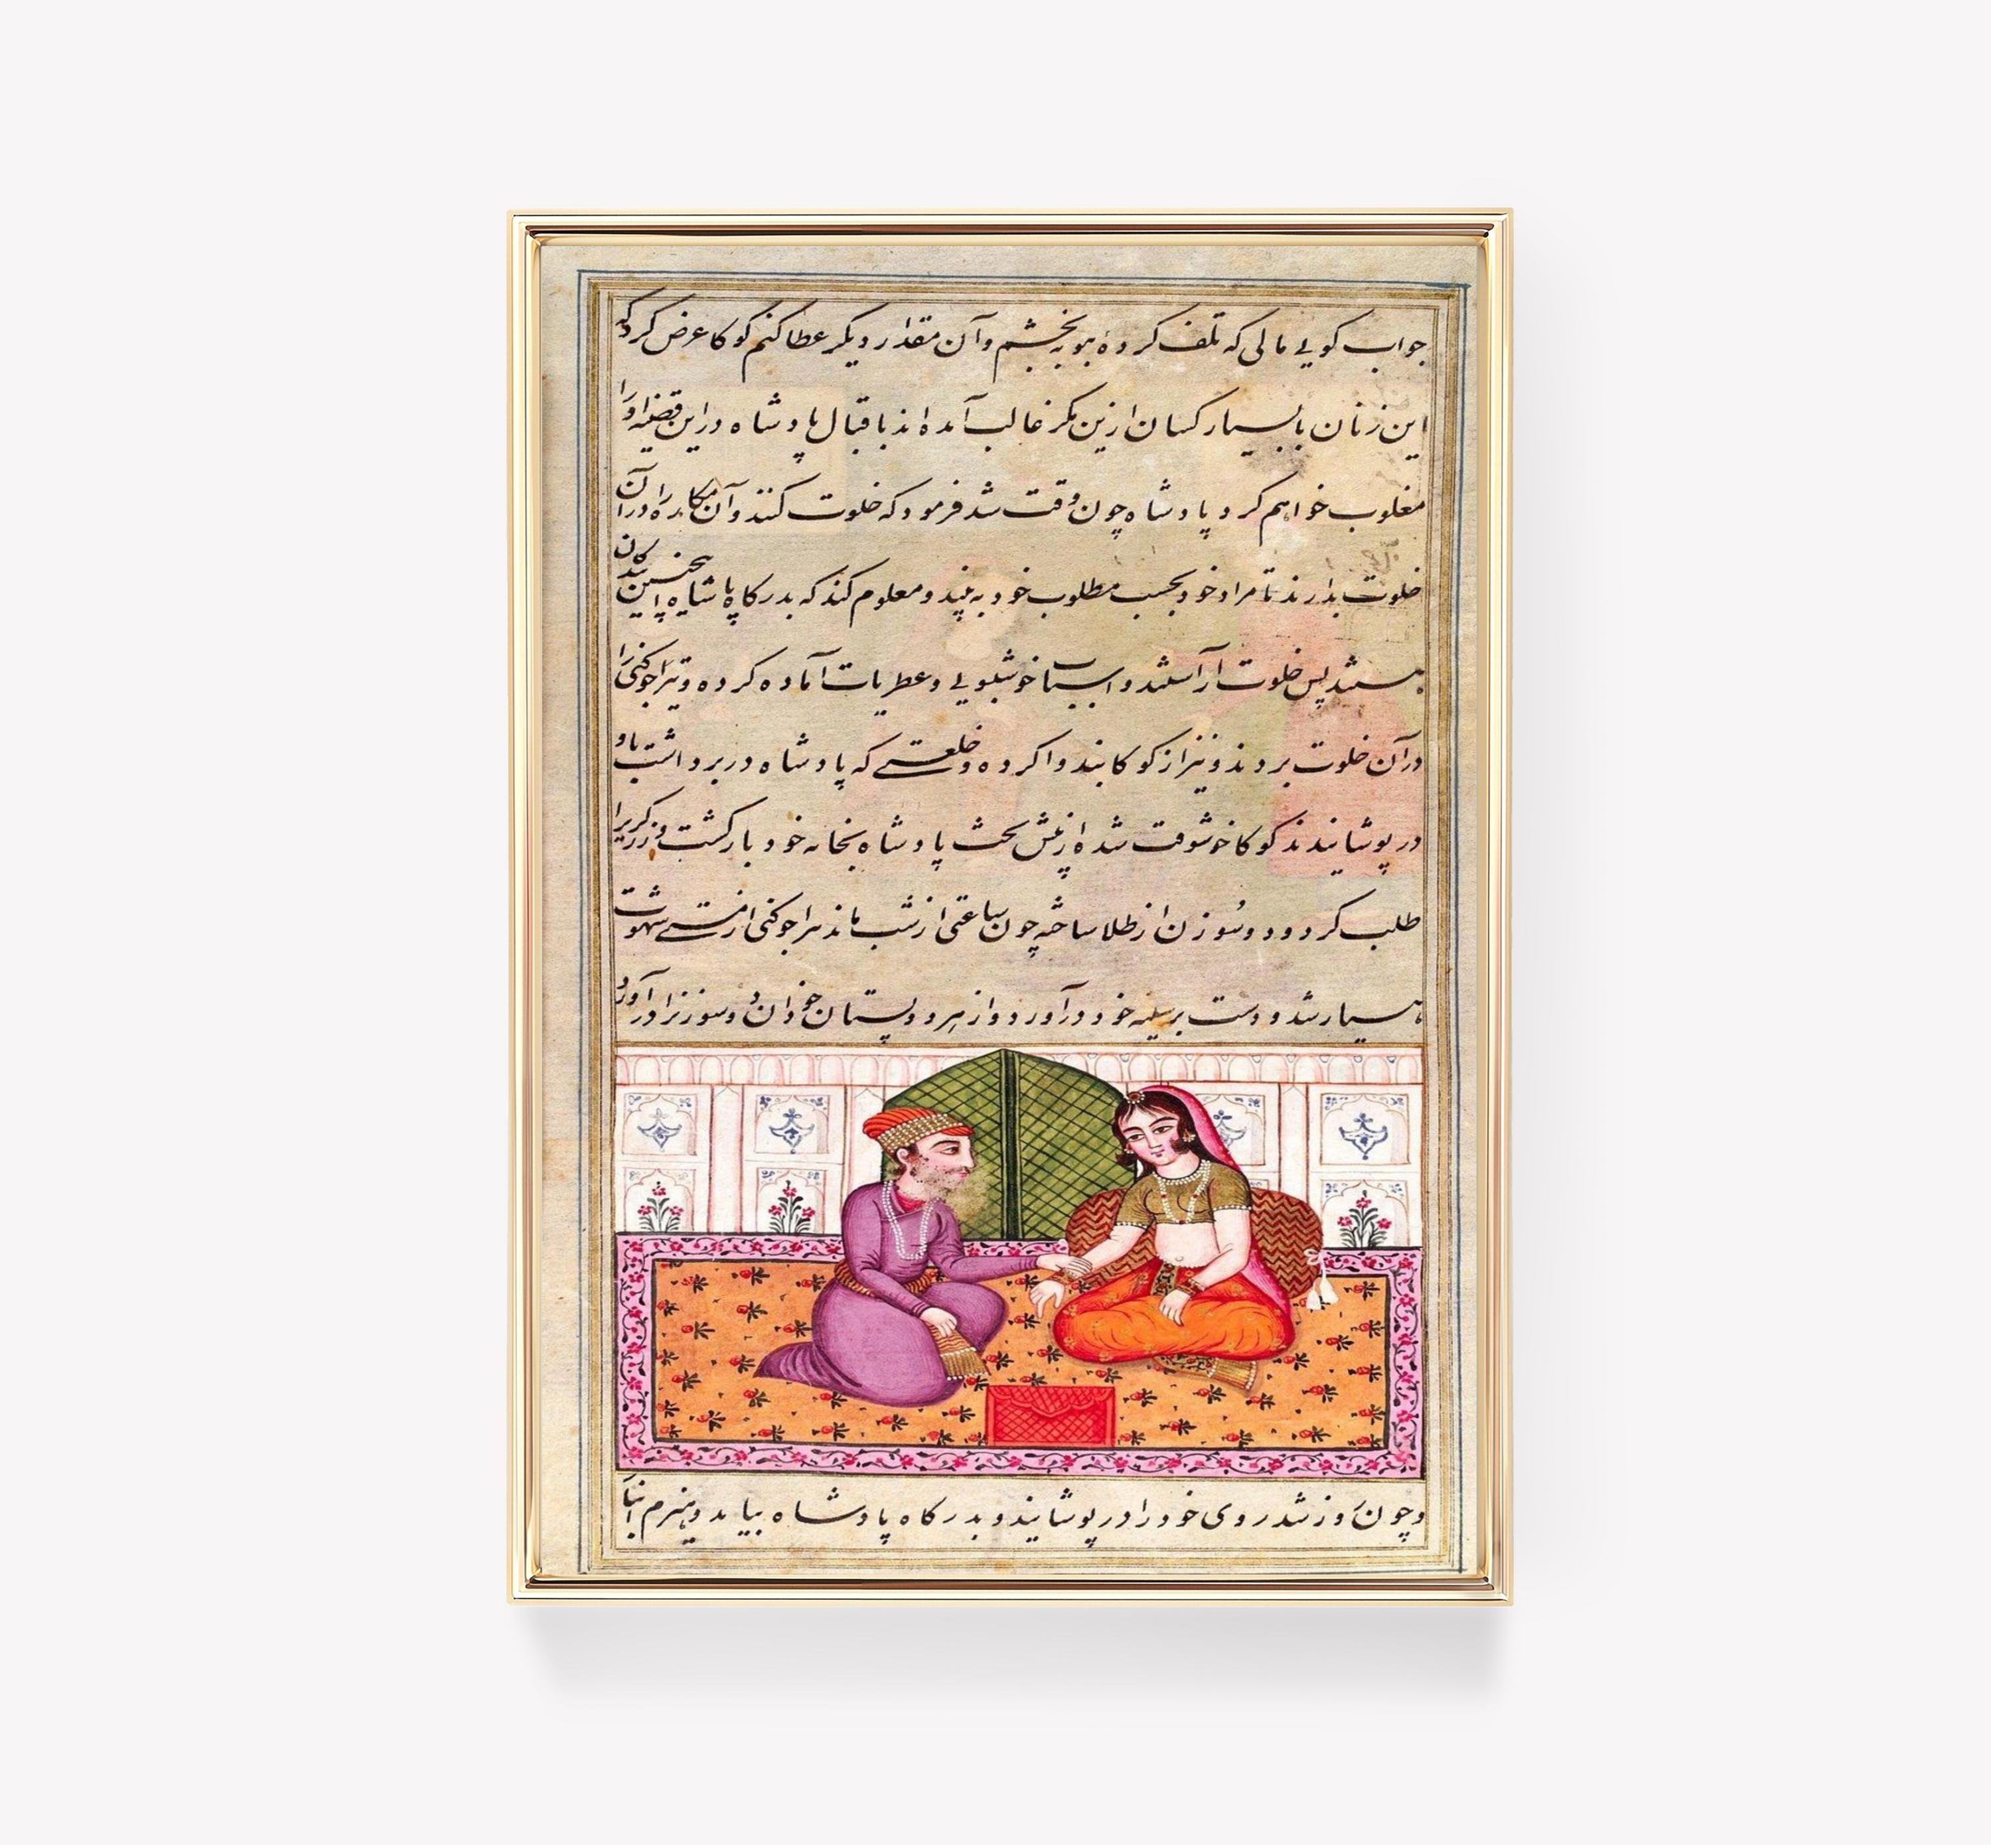 جواب کویی مالی که تلف کردهٔ بتو بخشم و آن مقدار دیکر عطا کنم کوکا عرض کرد که
این زنان با بسیار کسان ازین مکر غالب آمده اند باقبال پادشاه درین قضیه او را
مغلوب خواهم کرد پادشاه چون وقت شد فرمود که خلوت کنند و آن مکاره را در آن
خلوت بدارند تا مراد خود بحسب مطلوب خود به بیند و معلوم کند که بدرکاه پادشاه این چنین بندکان
هستند پس خلوت آراستند و اسباب خوشبویی و عطریات آماده کرده و هراجوکنی را
در آن خلوت بردند و نیز از کوکا بند وا کرده و خلعتی که پادشاه در بر داشت باو
در پوشانیدند کوکا خوشوقت شده از پیش تخت پادشاه بخانه خود بازکشت و زرکر را
طلب کرد و دو سوزن از طلا ساخته چون ساعتی از شب ماند هراجوکنی از مستی شهوت
هسیار شد و دست بر سینه خود در آورد و از هر دو پستان خود آن دو سوزن را در آورد
و چون روز شد روی خود را در پوشانید و بدرکاه پادشاه بیامد و